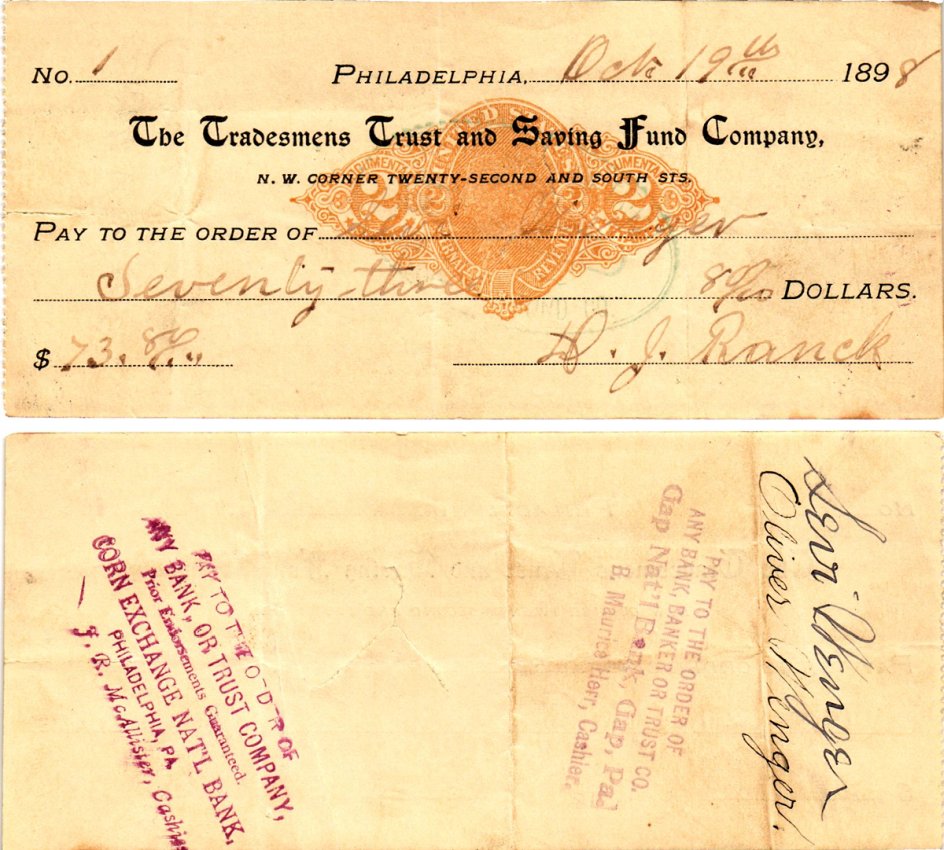 No. 1 PHILADELPHIA, Oct. 19th 1898
The Tradesmens Trust and Saving Fund Company,
N. W. CORNER TWENTY-SECOND AND SOUTH STS.
UNITED STATES
DOCUMENTARY
2 2
PAY TO THE ORDER OF Levi Wenger
Seventy-three DOLLARS.
$ 73. H. J. Ranck
Levi Wenger
Oliver Wenger.
"PAY TO THE ORDER OF
ANY BANK, BANKER OR TRUST CO.
Gap Nat'l Bank, Gap, Pa.
B. Maurice Herr, Cashier.
PAY TO THE O-D-R OF
ANY BANK, OR TRUST COMPANY,
Prior Endorsements Guaranteed.
CORN EXCHANGE NAT'L BANK,
PHILADELPHIA, PA
J. R. McAllister, Cashier